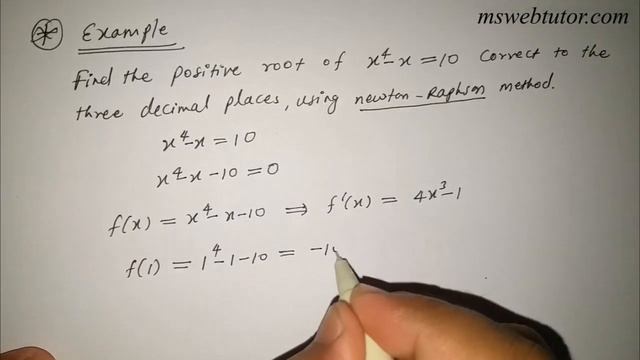 mswebtutor.com
* Example
Find the positive root of x⁴-x=10 correct to the
three decimal places, using newton-Raphson method.
x⁴-x=10
x⁴-x-10=0
f(x) = x⁴-x-10 ⇒ f'(x) = 4x³-1
f(1) = 1⁴-1-10 = -1